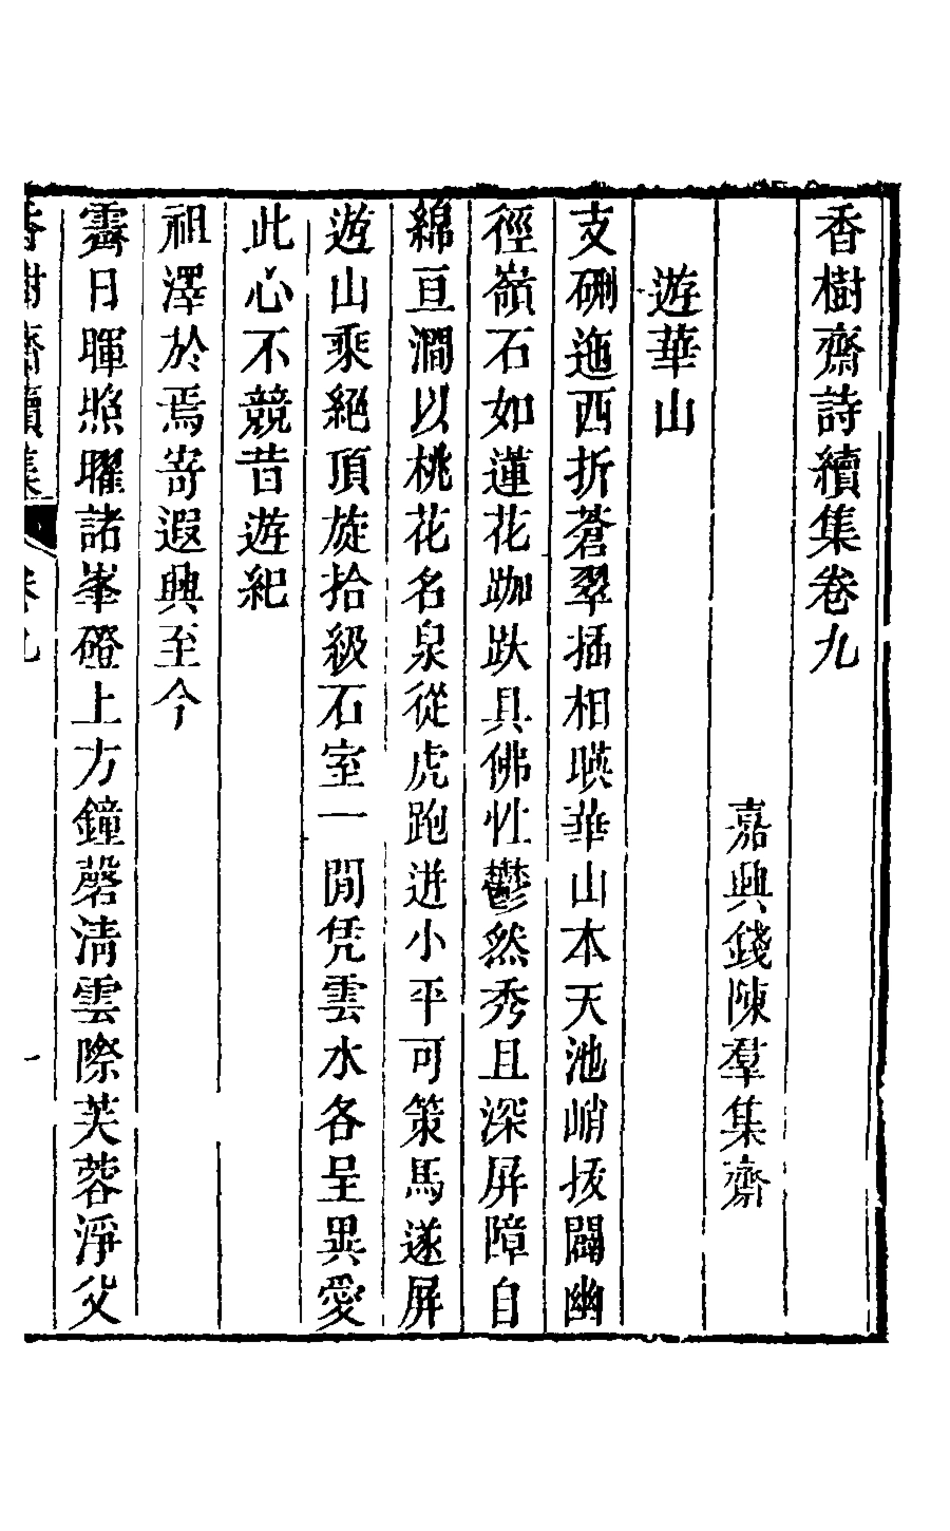 香樹齋詩續集卷九
嘉興錢陳羣集齋
遊華山
支硎迤西折蒼翠插相暎華山本天池峭拔闢幽
徑嶺石如蓮花跏趺具佛性鬱然秀且深屏障自
綿亘澗以桃花名泉從虎跑迸小平可策馬遂屏
遊山乘絕頂旋拾級石室一閒凭雲水各呈異愛
此心不競昔遊紀
祖澤於焉寄遐興至今
霽日暉煦曜諸峯磴上方鐘磬清雲際芙蓉淨父
香樹齋續集 卷九 一